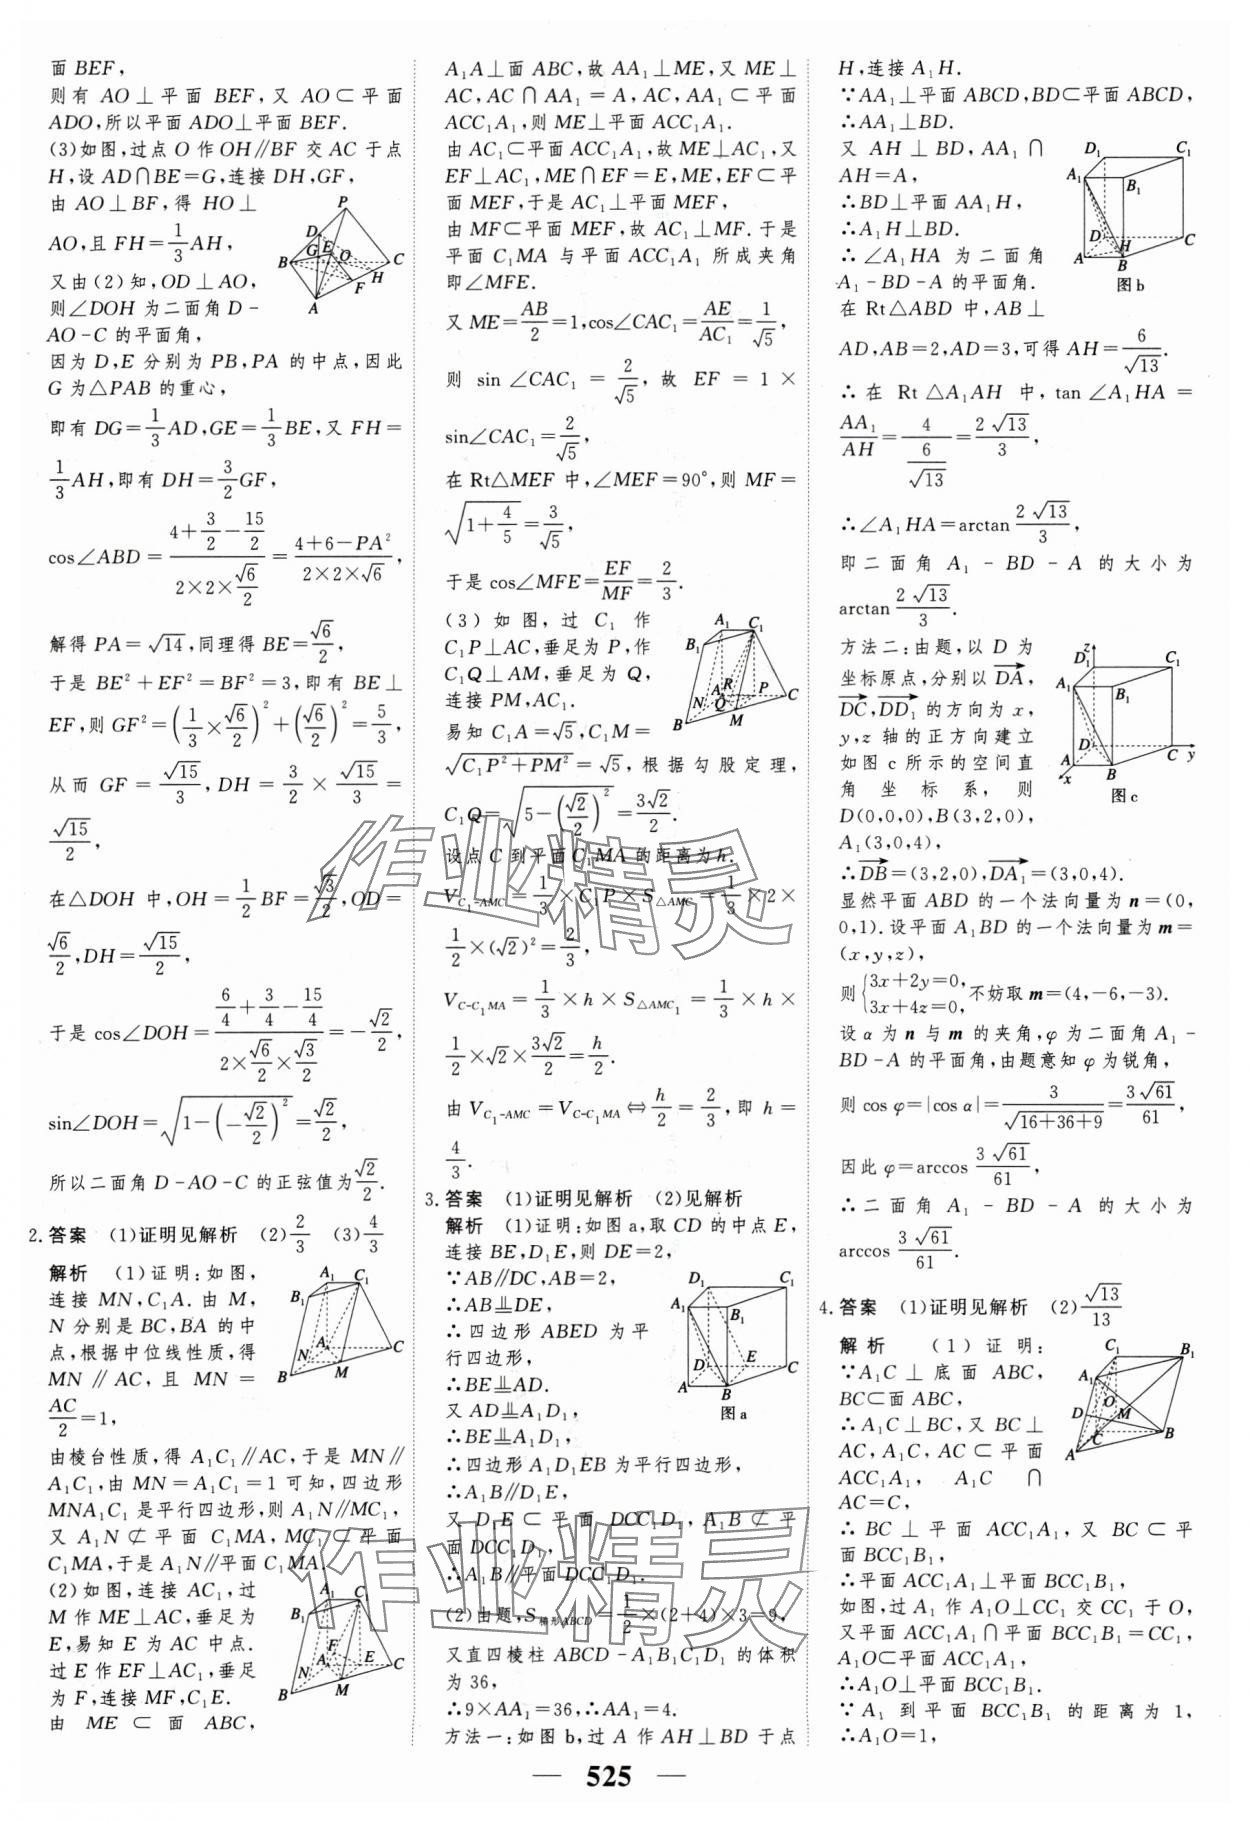 面 BEF,
则有 AO⊥平面 BEF,又 AO⊂平面
ADO,所以平面 ADO⊥平面 BEF.
(3)如图,过点 O 作 OH∥BF 交 AC 于点
H,设 AD∩BE=G,连接 DH,GF,
由 AO⊥BF,得 HO⊥
AO,且 FH=1/3 AH,
又由(2)知,OD⊥AO,
则∠DOH 为二面角 D-
AO-C 的平面角,
因为 D,E 分别为 PB,PA 的中点,因此
G 为△PAB 的重心,
即有 DG=1/3 AD,GE=1/3 BE,又 FH=
1/3 AH,即有 DH=3/2 GF,
cos∠ABD=(4+3/2-15/2)/(2×2×√6/2)=(4+6-PA²)/(2×2×√6),
解得 PA=√14,同理得 BE=√6/2,
于是 BE²+EF²=BF²=3,即有 BE⊥
EF,则 GF²=(1/3×√6/2)²+(√6/2)²=5/3,
从而 GF=√15/3,DH=3/2×√15/3=
√15/2,
在△DOH 中,OH=1/2 BF=√3/2,OD=
√6/2,DH=√15/2,
于是 cos∠DOH=(6/4+3/4-15/4)/(2×√6/2×√3/2)=-√2/2,
sin∠DOH=√(1-(-√2/2)²)=√2/2,
所以二面角 D-AO-C 的正弦值为√2/2.
2. 答案 (1)证明见解析 (2)2/3 (3)4/3
解析 (1)证明:如图,
连接 MN,C₁A.由 M,
N 分别是 BC,BA 的中
点,根据中位线性质,得
MN∥AC,且 MN=
AC/2=1,
由棱台性质,得 A₁C₁∥AC,于是 MN∥
A₁C₁,由 MN=A₁C₁=1 可知,四边形
MNA₁C₁ 是平行四边形,则 A₁N∥MC₁,
又 A₁N⊄平面 C₁MA,MC₁⊂平面
C₁MA,于是 A₁N∥平面 C₁MA.
(2)如图,连接 AC₁,过
M 作 ME⊥AC,垂足为
E,易知 E 为 AC 中点.
过 E 作 EF⊥AC₁,垂足
为 F,连接 MF,C₁E.
由 ME⊂面 ABC,
A₁A⊥面 ABC,故 AA₁⊥ME,又 ME⊥
AC,AC∩AA₁=A,AC,AA₁⊂平面
ACC₁A₁,则 ME⊥平面 ACC₁A₁.
由 AC₁⊂平面 ACC₁A₁,故 ME⊥AC₁,又
EF⊥AC₁,ME∩EF=E,ME,EF⊂平
面 MEF,于是 AC₁⊥平面 MEF,
由 MF⊂平面 MEF,故 AC₁⊥MF.于是
平面 C₁MA 与平面 ACC₁A₁ 所成夹角
即∠MFE.
又 ME=AB/2=1,cos∠CAC₁=AE/AC₁=1/√5,
则 sin∠CAC₁=2/√5,故 EF=1×
sin∠CAC₁=2/√5,
在 Rt△MEF 中,∠MEF=90°,则 MF=
√(1+4/5)=3/√5,
于是 cos∠MFE=EF/MF=2/3.
(3)如图,过 C₁ 作
C₁P⊥AC,垂足为 P,作
C₁Q⊥AM,垂足为 Q,
连接 PM,AC₁.
易知 C₁A=√5,C₁M=
√(C₁P²+PM²)=√5,根据勾股定理,
C₁Q=√(5-(√2/2)²)=3√2/2.
设点 C 到平面 C₁MA 的距离为 h.
V_{C₁-AMC}=1/3×C₁P×S_{△AMC}=1/3×2×
1/2×(√2)²=2/3,
V_{C-C₁MA}=1/3×h×S_{△AMC₁}=1/3×h×
1/2×√2×3√2/2=h/2.
由 V_{C₁-AMC}=V_{C-C₁MA}⇔h/2=2/3,即 h=
4/3.
3. 答案 (1)证明见解析 (2)见解析
解析 (1)证明:如图 a,取 CD 的中点 E,
连接 BE,D₁E,则 DE=2,
∵AB∥DC,AB=2,
∴AB⫫DE,
∴四边形 ABED 为平
行四边形,
∴BE⫫AD.
又 AD⫫A₁D₁,
∴BE⫫A₁D₁,
∴四边形 A₁D₁EB 为平行四边形,
∴A₁B∥D₁E,
又 D₁E⊂平面 DCC₁D₁,A₁B⊄平
面 DCC₁D₁,
∴A₁B∥平面 DCC₁D₁.
(2)由题,S_{梯形ABCD}=1/2×(2+4)×3=9,
又直四棱柱 ABCD-A₁B₁C₁D₁ 的体积
为 36,
∴9×AA₁=36,∴AA₁=4.
方法一:如图 b,过 A 作 AH⊥BD 于点
H,连接 A₁H.
∵AA₁⊥平面 ABCD,BD⊂平面 ABCD,
∴AA₁⊥BD.
又 AH⊥BD,AA₁∩
AH=A,
∴BD⊥平面 AA₁H,
∴A₁H⊥BD.
∴∠A₁HA 为二面角
A₁-BD-A 的平面角.
图 b
在 Rt△ABD 中,AB⊥
AD,AB=2,AD=3,可得 AH=6/√13.
∴在 Rt△A₁AH 中,tan∠A₁HA=
AA₁/AH=4/(6/√13)=2√13/3,
∴∠A₁HA=arctan 2√13/3,
即二面角 A₁-BD-A 的大小为
arctan 2√13/3.
方法二:由题,以 D 为
坐标原点,分别以 DA→,
DC→,DD₁→ 的方向为 x,
y,z 轴的正方向建立
如图 c 所示的空间直
角坐标系,则
图 c
D(0,0,0),B(3,2,0),
A₁(3,0,4),
∴DB→=(3,2,0),DA₁→=(3,0,4).
显然平面 ABD 的一个法向量为 n=(0,
0,1).设平面 A₁BD 的一个法向量为 m=
(x,y,z),
则{3x+2y=0, 3x+4z=0, 不妨取 m=(4,-6,-3).
设 α 为 n 与 m 的夹角,φ 为二面角 A₁-
BD-A 的平面角,由题意知 φ 为锐角,
则 cos φ=|cos α|=3/√(16+36+9)=3√61/61,
因此 φ=arccos 3√61/61,
∴二面角 A₁-BD-A 的大小为
arccos 3√61/61.
4. 答案 (1)证明见解析 (2)√13/13
解析 (1)证明:
∵A₁C⊥底面 ABC,
BC⊂面 ABC,
∴A₁C⊥BC,又 BC⊥
AC,A₁C,AC⊂平面
ACC₁A₁,A₁C∩
AC=C,
∴BC⊥平面 ACC₁A₁,又 BC⊂平
面 BCC₁B₁,
∴平面 ACC₁A₁⊥平面 BCC₁B₁,
如图,过 A₁ 作 A₁O⊥CC₁ 交 CC₁ 于 O,
又平面 ACC₁A₁∩平面 BCC₁B₁=CC₁,
A₁O⊂平面 ACC₁A₁,
∴A₁O⊥平面 BCC₁B₁.
∵A₁ 到平面 BCC₁B₁ 的距离为 1,
∴A₁O=1,
图 a
作业精灵
作业精灵
— 525 —